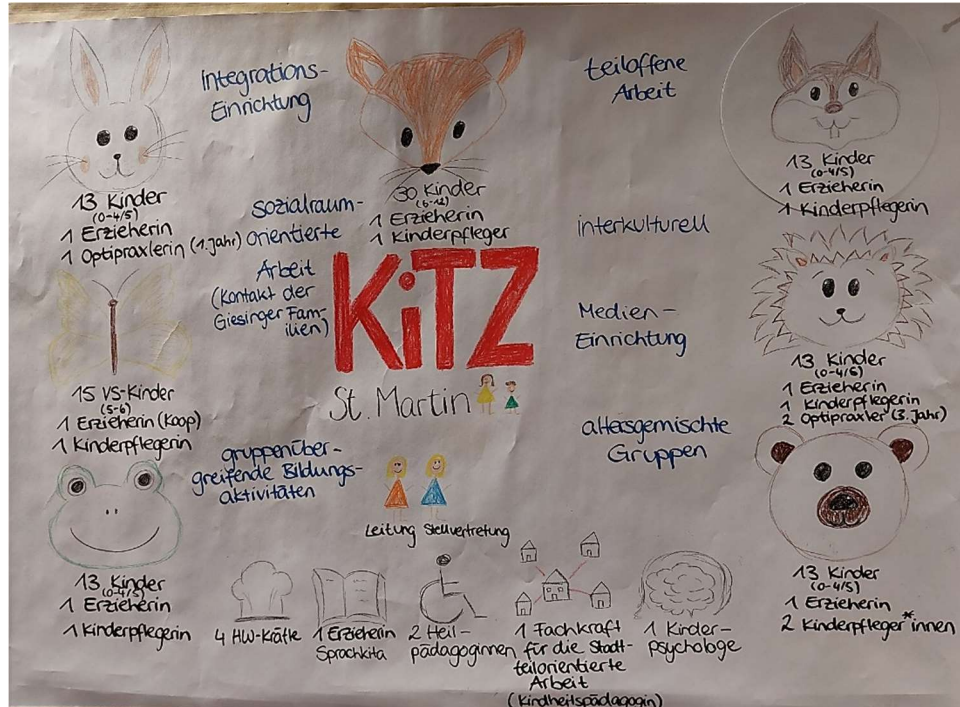 Integrations-
Einrichtung
teiloffene
Arbeit
13 Kinder
(0-4/5)
1 Erzieherin
1 Optipraxlerin (1. Jahr)
30 Kinder
(6-12)
1 Erzieherin
1 Kinderpfleger
13 Kinder
(0-4/5)
1 Erzieherin
1 Kinderpflegerin
sozialraum-
orientierte
Arbeit
(Kontakt der
Giesinger Fam-
ilien)
interkulturell
KiTZ
St. Martin
Medien-
Einrichtung
13 Kinder
(0-4/5)
1 Erzieherin
1 Kinderpflegerin
2 Optipraxler (3. Jahr)
15 VS-Kinder
(5-6)
1 Erzieherin (Koop)
1 Kinderpflegerin
gruppenüber-
greifende Bildungs-
aktivitäten
altersgemischte
Gruppen
Leitung Stellvertretung
13 Kinder
(0-4/5)
1 Erzieherin
1 Kinderpflegerin
4 HW-Kräfte
1 Erzieherin
Sprachkita
2 Heil-
pädagoginnen
1 Fachkraft
für die Stadt-
teilorientierte
Arbeit
(Kindheitspädagogin)
1 Kinder-
psychologe
13 Kinder
(0-4/5)
1 Erzieherin
2 Kinderpfleger*innen